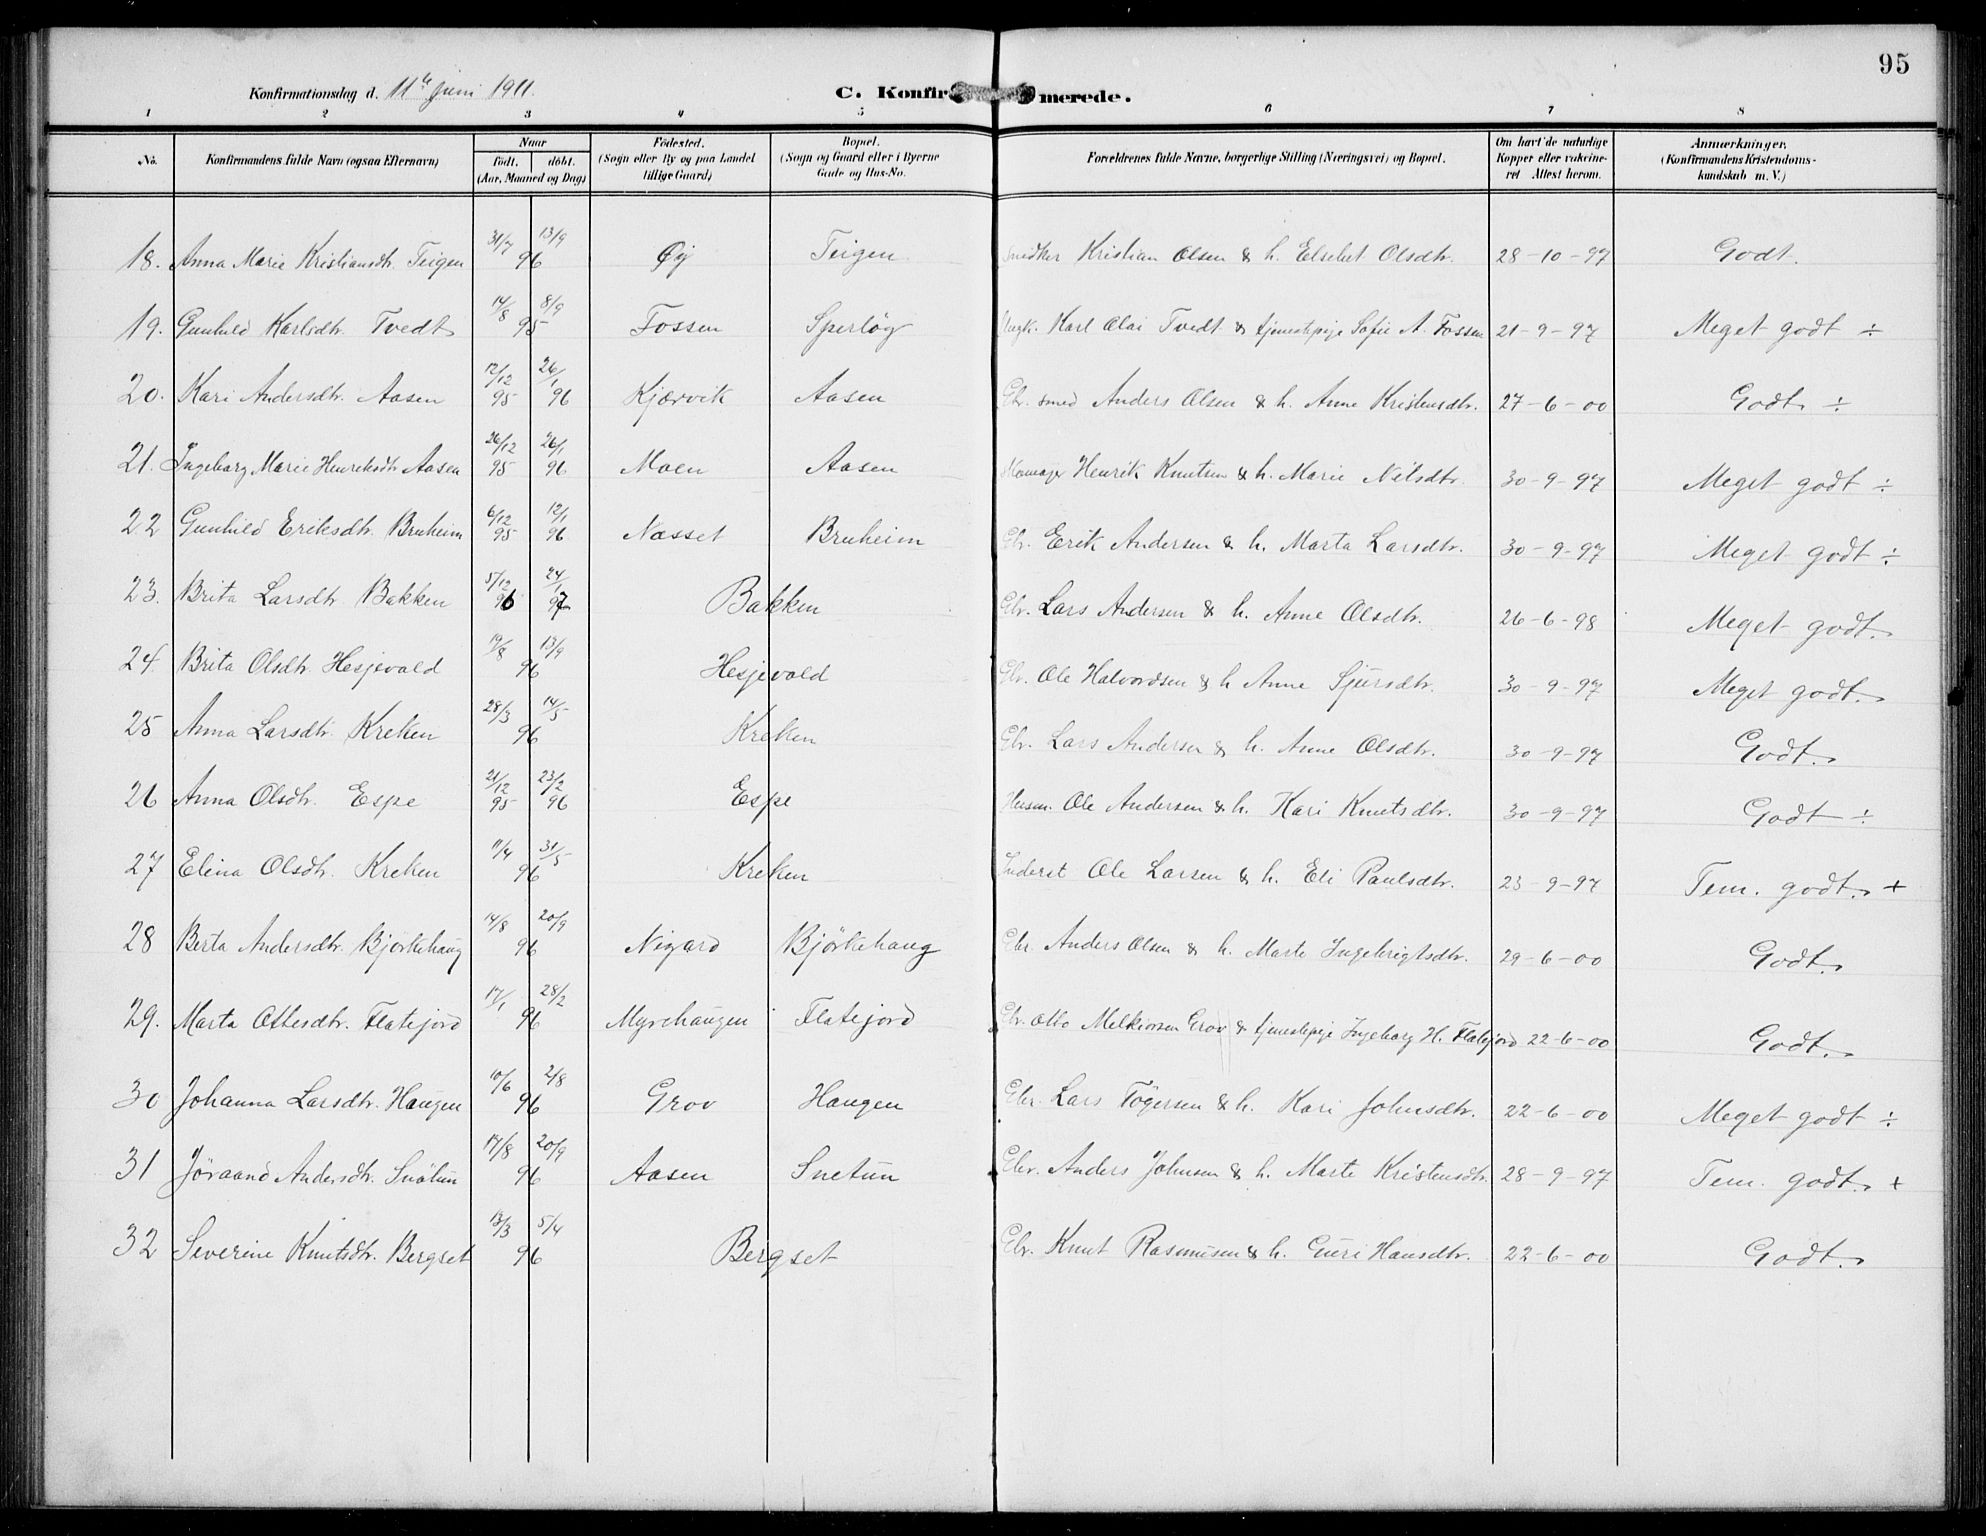 95
Konfirmationsdag d. 11te Juni 1911. C. Konfirmerede.
1 2 3 4 5 6 7 8
No. Konfirmandens fulde Navn (ogsaa Efternavn) Naar født. døbt. (Aar, Maaned og Dag) Fødested. (Sogn eller By og paa Landet tillige Gaard) Bopæl. (Sogn og Gaard eller i Byerne Gade og Hus-No. Forældrenes fulde Navne, borgerlige Stilling (Næringsvei) og Bopæl. Om havt de naturlige Kopper eller vakcineret Attest herom. Anmærkninger, (Konfirmandens Kristendomskundskab m. V.)
18. Anna Marie Kristiansdtr. Teigen 31/7 13/9 96 Øy Teigen Snedker Kristian Olsen & h. Elsebet Olsdtr. 28-10-97 Godt.
19. Gunhild Karlsdtr. Tvedt 14/8 8/9 95 Fossen Sperløg Ungk. Karl Olai Tvedt & tjenestepige Sofie A. Fossen 21-9-97 Meget godt ÷
20. Kari Andersdtr. Aasen 12/12 95 26/1 96 Kjærvik Aasen Gbr. smed Anders Olsen & h. Anne Kristensdtr. 27-6-00 Godt ÷
21. Ingeborg Marie Henriksdtr Aasen 26/12 95 26/1 96 Moen Aasen Henrik Knutsen & h. Marie Nilsdtr. 30-9-97 Meget godt ÷
22 Gunhild Eriksdtr. Bruheim 6/12 95 12/1 96 Næsset Bruheim Gbr. Erik Andersen & h. Marta Larsdtr. 30-9-97 Meget godt ÷
23. Brita Larsdtr. Bakken 5/12 96 24/1 97 Bakken Gbr. Lars Andersen & h. Anne Olsdtr. 26-6-98 Meget godt.
24. Brita Olsdtr. Hesjevold 19/8 13/9 96 Hesjevold Gbr. Ole Halvordsen & h Anne Sjursdtr. 30-9-97 Meget godt.
25 Anna Larsdtr. Kreken 28/3 14/5 96 Kreken Gbr. Lars Andersen & h. Anne Olsdtr. 30-9-97 Godt.
26 Anna Olsdtr. Espe 21/12 95 23/2 96 Espe Husm. Ole Andersen & h. Kari Knutsdtr. 30-9-97 Godt ÷
27 Elina Olsdtr. Kreken 11/4 31/5 96 Kreken Inderst Ole Larsen & h. Eli Paulsdtr. 23-9-97 Tem. godt. +
28 Berta Andersdtr. Bjørkehaug 14/8 20/9 96 Nigard Bjørkehaug Gbr. Anders Olsen & h. Marte Ingebrigtsdtr. 29-6-00 Godt.
29. Marta Ottesdtr. Flatejord 17/1 28/2 96 Myrehaugen Flatejord Gbr. Otto Melkiorsen Grov & tjenestepige Ingeborg H. Flatejord 22-6-00 Godt.
30 Johanna Larsdtr. Haugen 10/6 2/8 96 Grov Haugen Gbr. Lars Tøgersen & h. Kari Johnsdtr. 22-6-00 Meget godt ÷
31 Jøraand Andersdtr. Snøtun 17/8 20/9 96 Aasen Snetun Gbr. Anders Johnsen & h. Marte Kristensdtr. 28-9-97 Tem. godt. +
32 Severine Knutsdtr. Bergset 13/3 5/4 96 Bergset Gbr. Knut Rasmusen & h. Guri Hansdtr. 22-6-00 Godt.